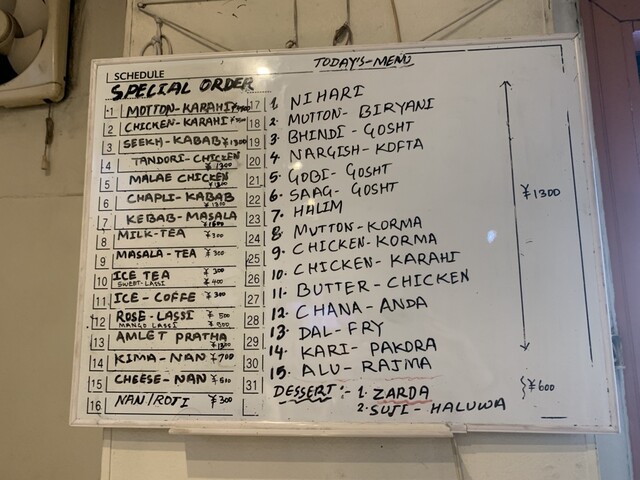 SCHEDULE
TODAY'S-MENU
SPECIAL ORDER
1 MOTTON-KARAHI
2 CHICKEN-KARAHI
3 SEEKH-KABAB ¥1300
4 TANDORI-CHICKEN
¥1300
5 MALAE CHICKEN
¥1300
6 CHAPLI-KABAB
¥1300
7 KEBAB-MASALA
8 MILK-TEA ¥300
9 MASALA-TEA ¥300
10 ICE TEA ¥300
SWEET-LASSI ¥400
11 ICE-COFFE ¥300
12 ROSE-LASSI ¥500
MANGO LASSI ¥500
13 AMLET PRATHA
14 KIMA-NAN ¥700
15 CHEESE-NAN ¥500
16 NAN/ROTI ¥300
17
18
19
20
21
22
23
24
25
26
27
28
29
30
31
1. NIHARI
2. MUTTON-BIRYANI
3. BHINDI-GOSHT
4. NARGISH-KOFTA
5. GOBI-GOSHT
6. SAAG-GOSHT
7. HALIM
8. MUTTON-KORMA
9. CHICKEN-KORMA
10. CHICKEN-KARAHI
11. BUTTER-CHICKEN
12. CHANA-ANDA
13. DAL-FRY
14. KARI-PAKORA
15. ALU-RAJMA
¥1300
DESSERT:- 1. ZARDA
2. SUJI-HALUWA
¥600